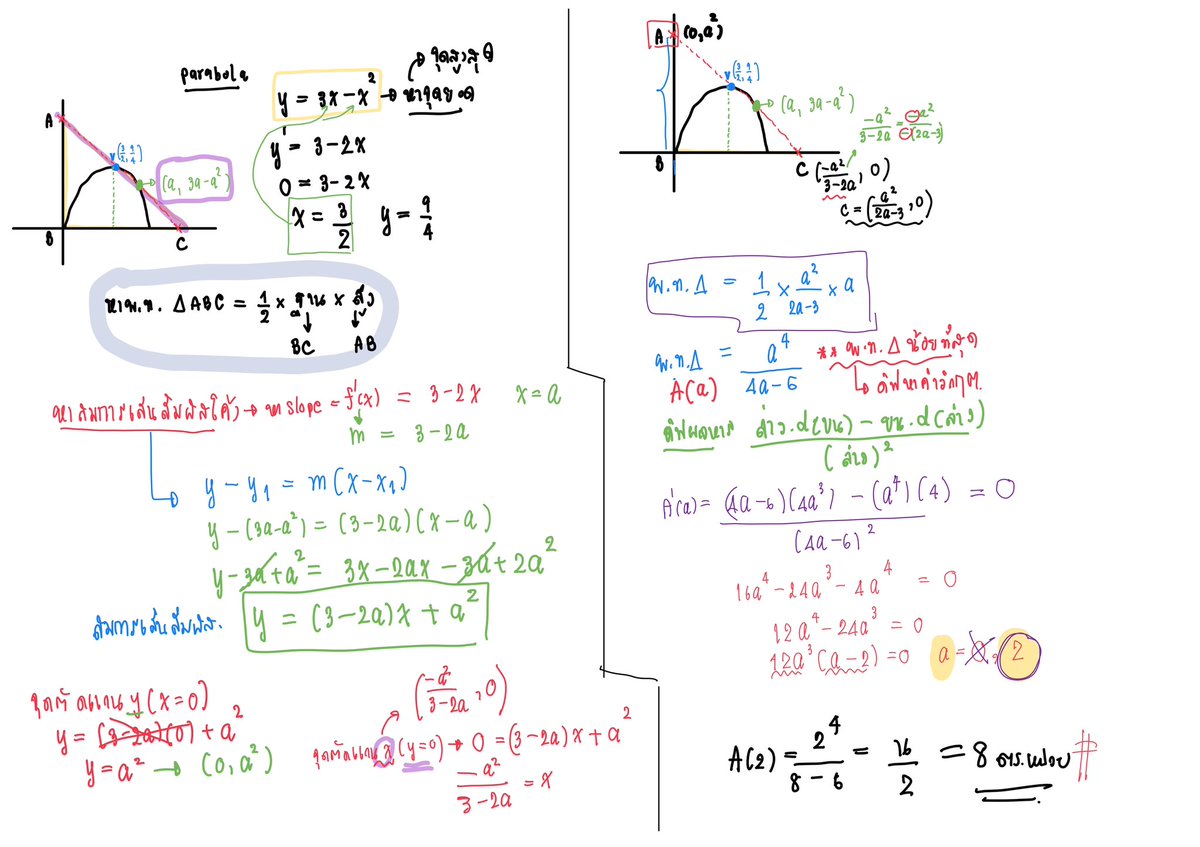 parabola
จุดสูงสุด
y = 3x-x² → หาจุดยอด
y' = 3-2x
0 = 3-2x
x = 3/2 y = 9/4
A
V(3/2, 9/4)
(a, 3a-a²)
B
C
หาพ.ท. Δ ABC = 1/2 × ฐาน × สูง
BC AB
หาสมการเส้นสัมผัสโค้ง → หา slope = f'(x) = 3-2x x=a
m = 3-2a
y - y₁ = m(x-x₁)
y-(3a-a²) = (3-2a)(x-a)
y-3a+a² = 3x-2ax-3a+2a²
สมการเส้นสัมผัส. y = (3-2a)x + a²
จุดตัดแกน y (x=0)
y = (3-2a)(0) + a²
y = a² → (0, a²)
(-a²/3-2a, 0)
จุดตัดแกน x (y=0) → 0 = (3-2a)x + a²
-a²/3-2a = x
A (0, a²)
V(3/2, 9/4)
(a, 3a-a²)
-a²/3-2a = -a²/-(2a-3)
B
C (-a²/3-2a, 0)
C = (a²/2a-3, 0)
พ.ท. Δ = 1/2 × a²/2a-3 × a
พ.ท. Δ = a⁴/4a-6 ** พ.ท. Δ น้อยที่สุด
A(a) ดิฟหาค่าวิกฤต.
ดิฟผลหาร ล่าง.d(บน) - บน.d(ล่าง)/(ล่าง)²
A'(a) = (4a-6)(4a³) - (a⁴)(4)/(4a-6)² = 0
16a⁴-24a³-4a⁴ = 0
12a⁴-24a³ = 0
12a³(a-2) = 0 a = 0, 2
A(2) = 2⁴/8-6 = 16/2 = 8 ตร.หน่วย #